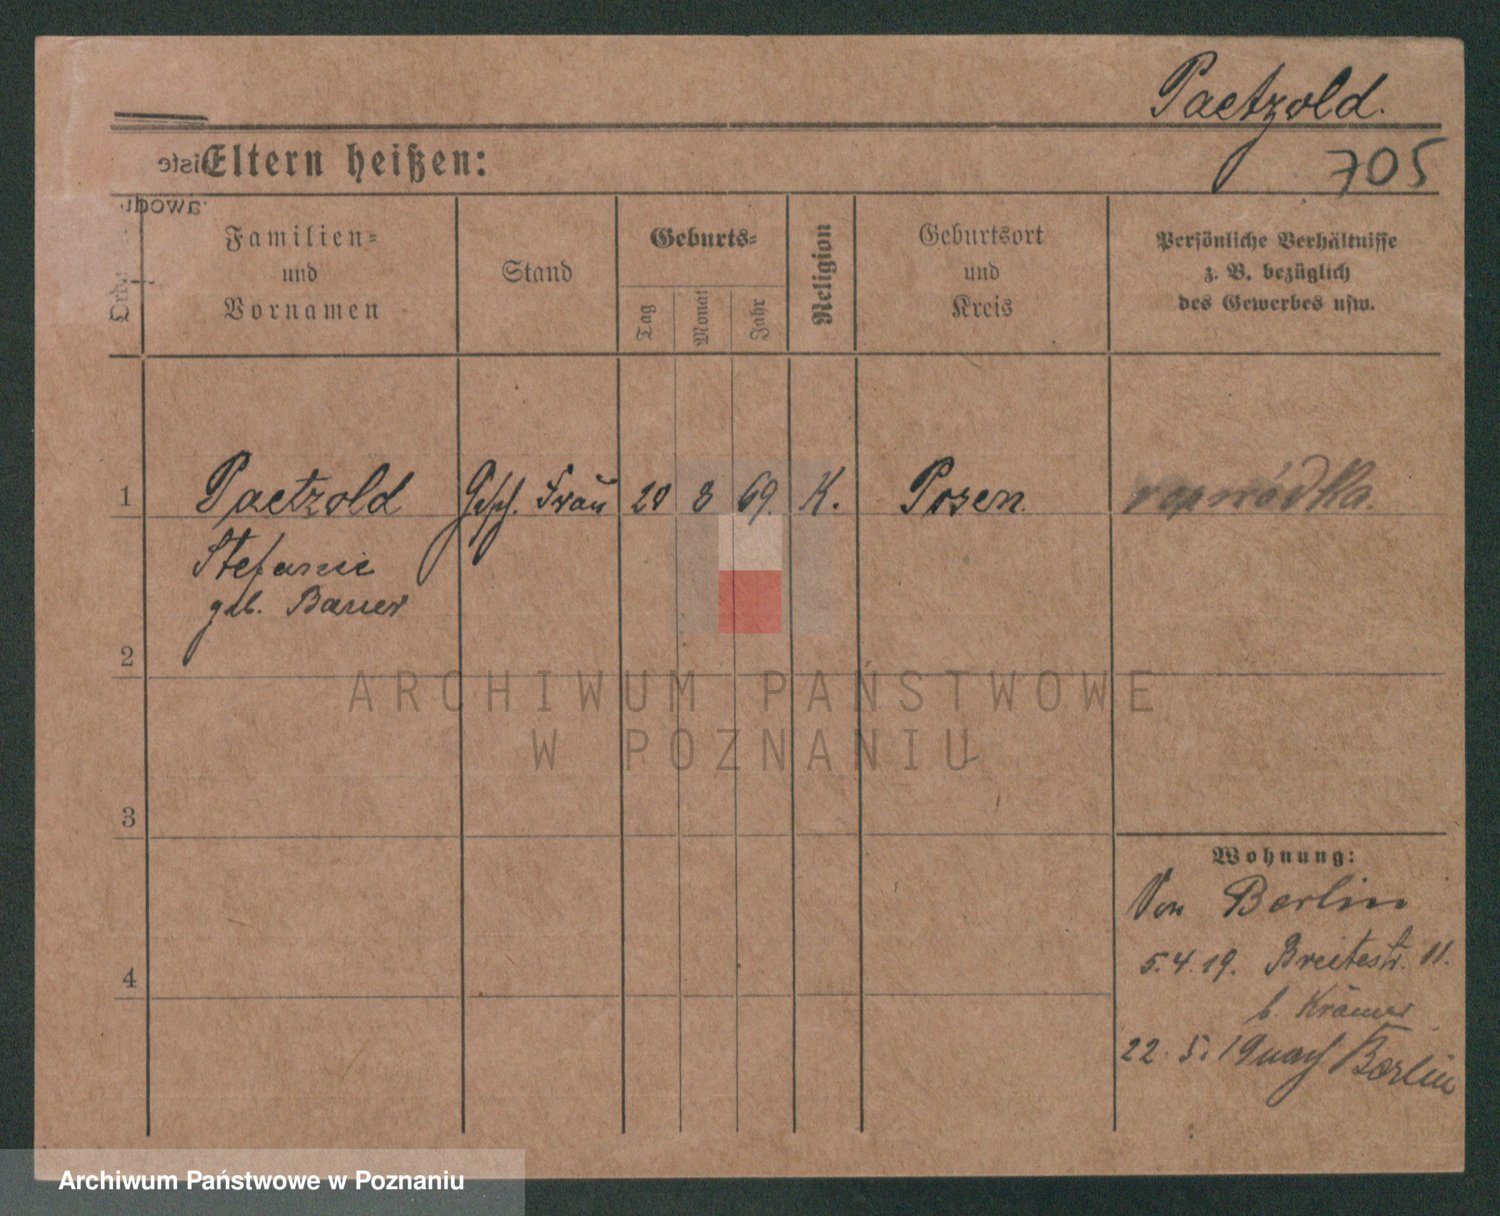 Paetzold.
Eltern heißen:
705
Ord.
Familien-
und
Vornamen
Stand
Geburts-
Tag
Monat
Jahr
Religion
Geburtsort
und
Kreis
Persönliche Verhältnisse
z. B. bezüglich
des Gewerbes usw.
1 Paetzold Gesch. Frau 20 8 69. K. Posen.
Stefanie
geb. Bauer
2
ARCHIWUM PAŃSTWOWE
W POZNANIU
3
4
Wohnung:
Von Berlin
5.4.19. Breitestr. 11.
b. Krämer
22.5.19 nach Berlin
Archiwum Państwowe w Poznaniu